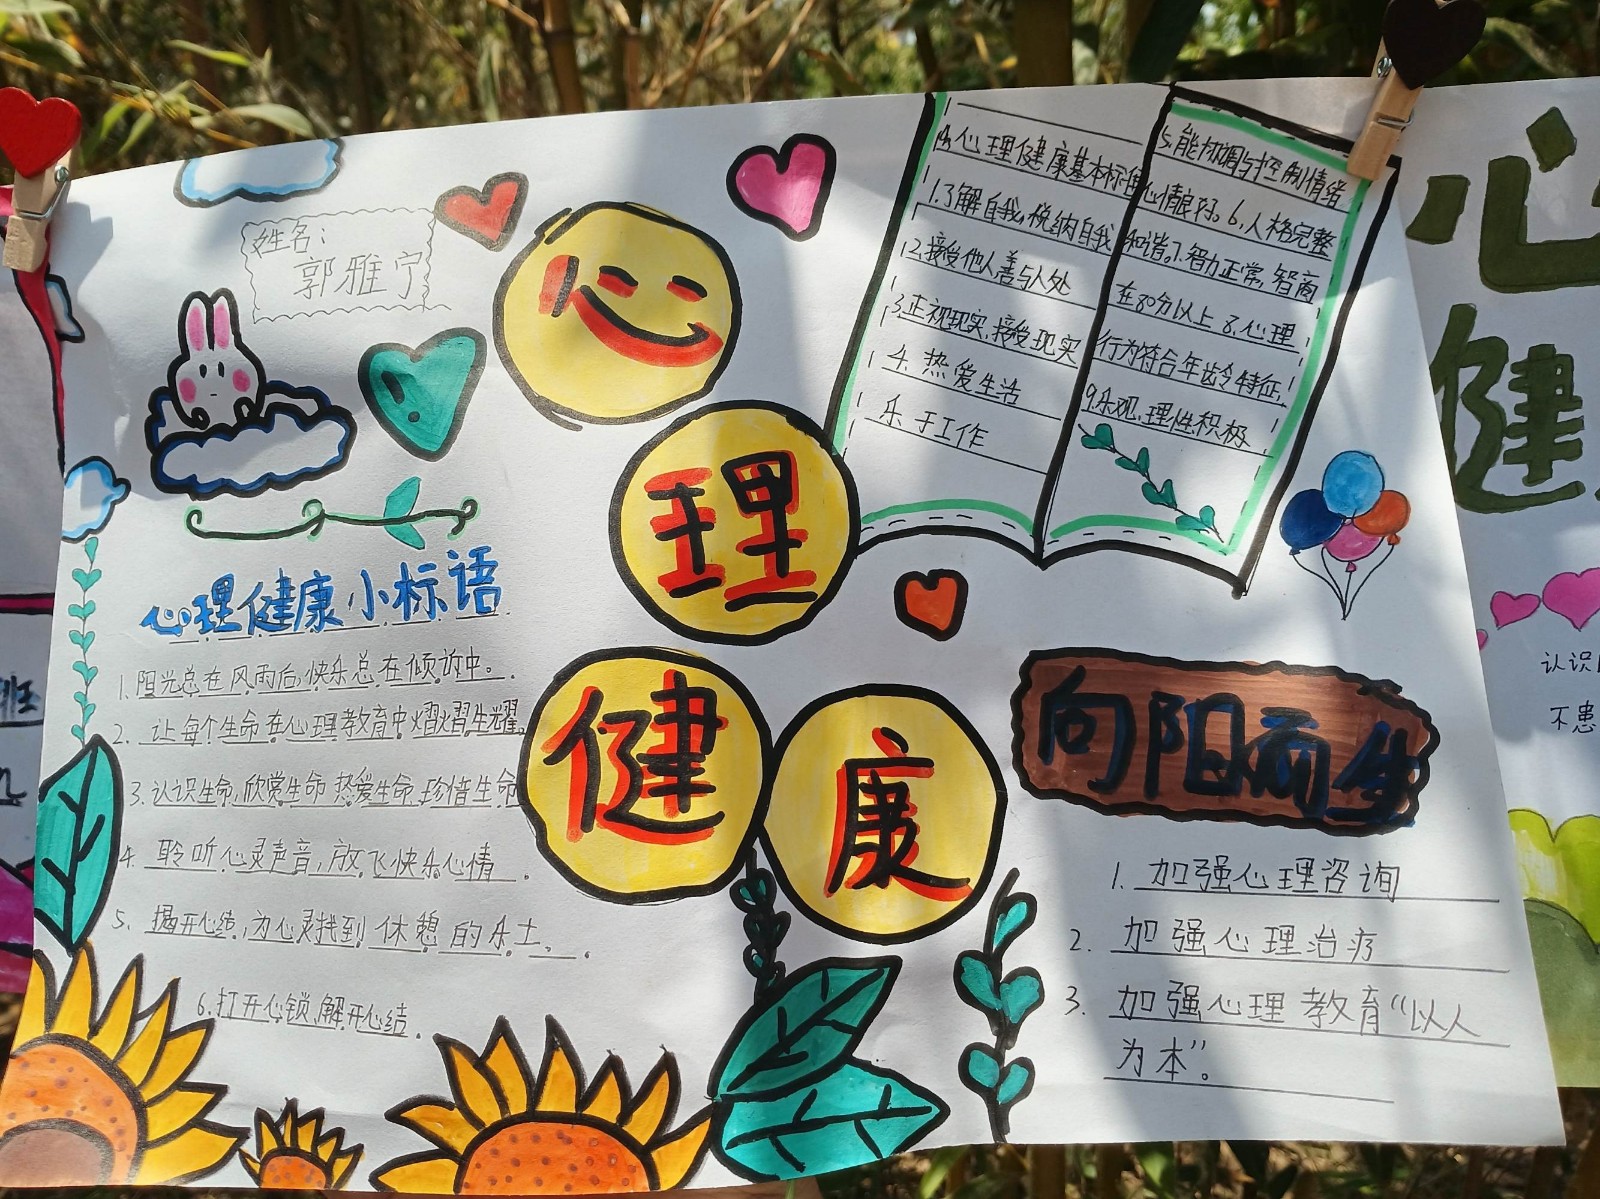 姓名：
郭雅宁
心理健康
心理健康基本标准
1.了解自我,悦纳自我
2.接受他人善与人处
3.正视现实,接受现实
4.热爱生活
乐于工作
5.能协调与控制情绪
心情良好。6.人格完整
和谐。7.智力正常,智商
在80分以上 8.心理
行为符合年龄特征,
9.乐观、理性积极
心理健康小标语
1.阳光总在风雨后,快乐总在倾诉中。
2.让每个生命在心理教育中熠熠生耀。
3.认识生命,欣赏生命 热爱生命 珍惜生命
4.聆听心灵声音,放飞快乐心情.
5.揭开心结,为心灵找到休憩的乐土.
6.打开心锁,解开心结.
向阳而生
1.加强心理咨询
2.加强心理治疗
3.加强心理教育“以人
为本”。
心
健
认识
不患
班